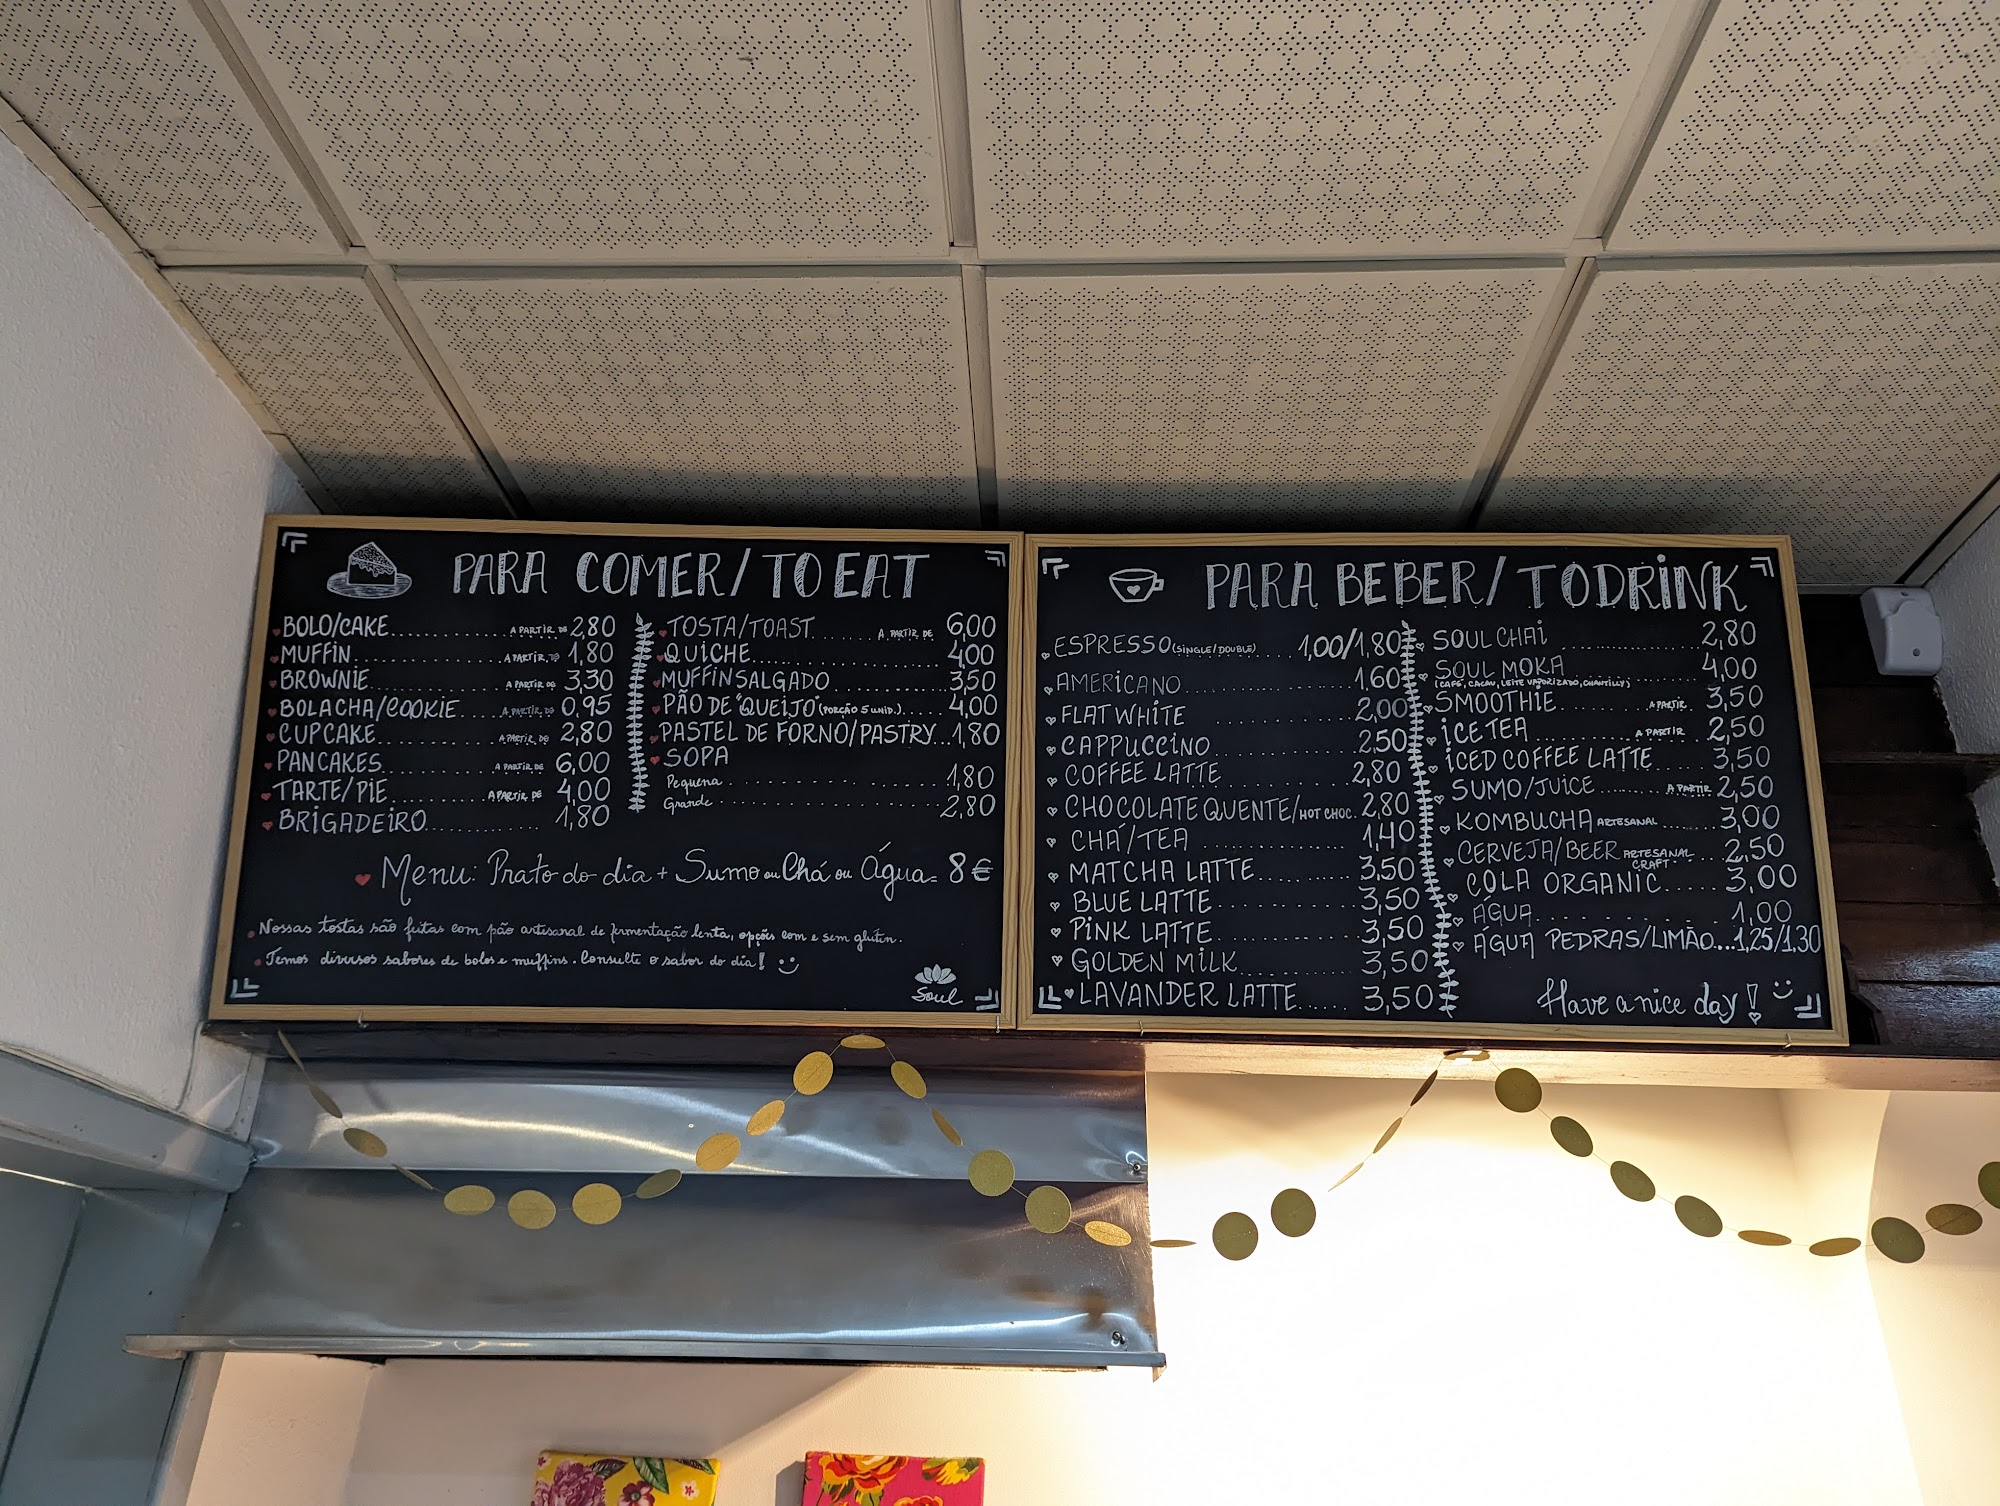 PARA COMER/TO EAT
BOLO/CAKE........ A PARTIR DE 2,80
MUFFIN........ A PARTIR DE 1,80
BROWNIE........ A PARTIR DE 3,30
BOLACHA/COOKIE...... A PARTIR DE 0,95
CUPCAKE........ A PARTIR DE 2,80
PANCAKES........ A PARTIR DE 6,00
TARTE/PIE........ A PARTIR DE 4,00
BRIGADEIRO........ 1,80
TOSTA/TOAST...... A PARTIR DE 6,00
QUICHE........ 4,00
MUFFIN SALGADO........ 3,50
PÃO DE "QUEIJO" (PORÇÃO 5 UNID.)..... 4,00
PASTEL DE FORNO/PASTRY...1,80
SOPA
Pequena........ 1,80
Grande........ 2,80
Menu: Prato do dia + Sumo ou Chá ou Água = 8€
Nossas tostas são feitas com pão artesanal de fermentação lenta, opções com e sem gluten.
Temos diversos sabores de bolos e muffins. Consulte o sabor do dia!
Soul
PARA BEBER/TO DRINK
ESPRESSO (SINGLE/DOUBLE) ...... 1,00/1,80
AMERICANO........ 1,60
FLAT WHITE........ 2,00
CAPPUCCINO........ 2,50
COFFEE LATTE........ 2,80
CHOCOLATE QUENTE/HOT CHOC. 2,80
CHÁ/TEA........ 1,40
MATCHA LATTE........ 3,50
BLUE LATTE........ 3,50
PINK LATTE........ 3,50
GOLDEN MILK........ 3,50
LAVANDER LATTE...... 3,50
SOUL CHAI........ 2,80
SOUL MOKA........ 4,00
(CAFÉ, CACAU, LEITE VAPORIZADO, CHANTILLY)
SMOOTHIE........ A PARTIR. 3,50
ICE TEA........ A PARTIR 2,50
ICED COFFEE LATTE...... 3,50
SUMO/JUICE........ A PARTIR 2,50
KOMBUCHA ARTESANAL ...... 3,00
CERVEJA/BEER ARTESANAL CRAFT ... 2,50
COLA ORGANIC...... 3,00
ÁGUA........ 1,00
ÁGUA PEDRAS/LIMÃO...1,25/1,30
Have a nice day!